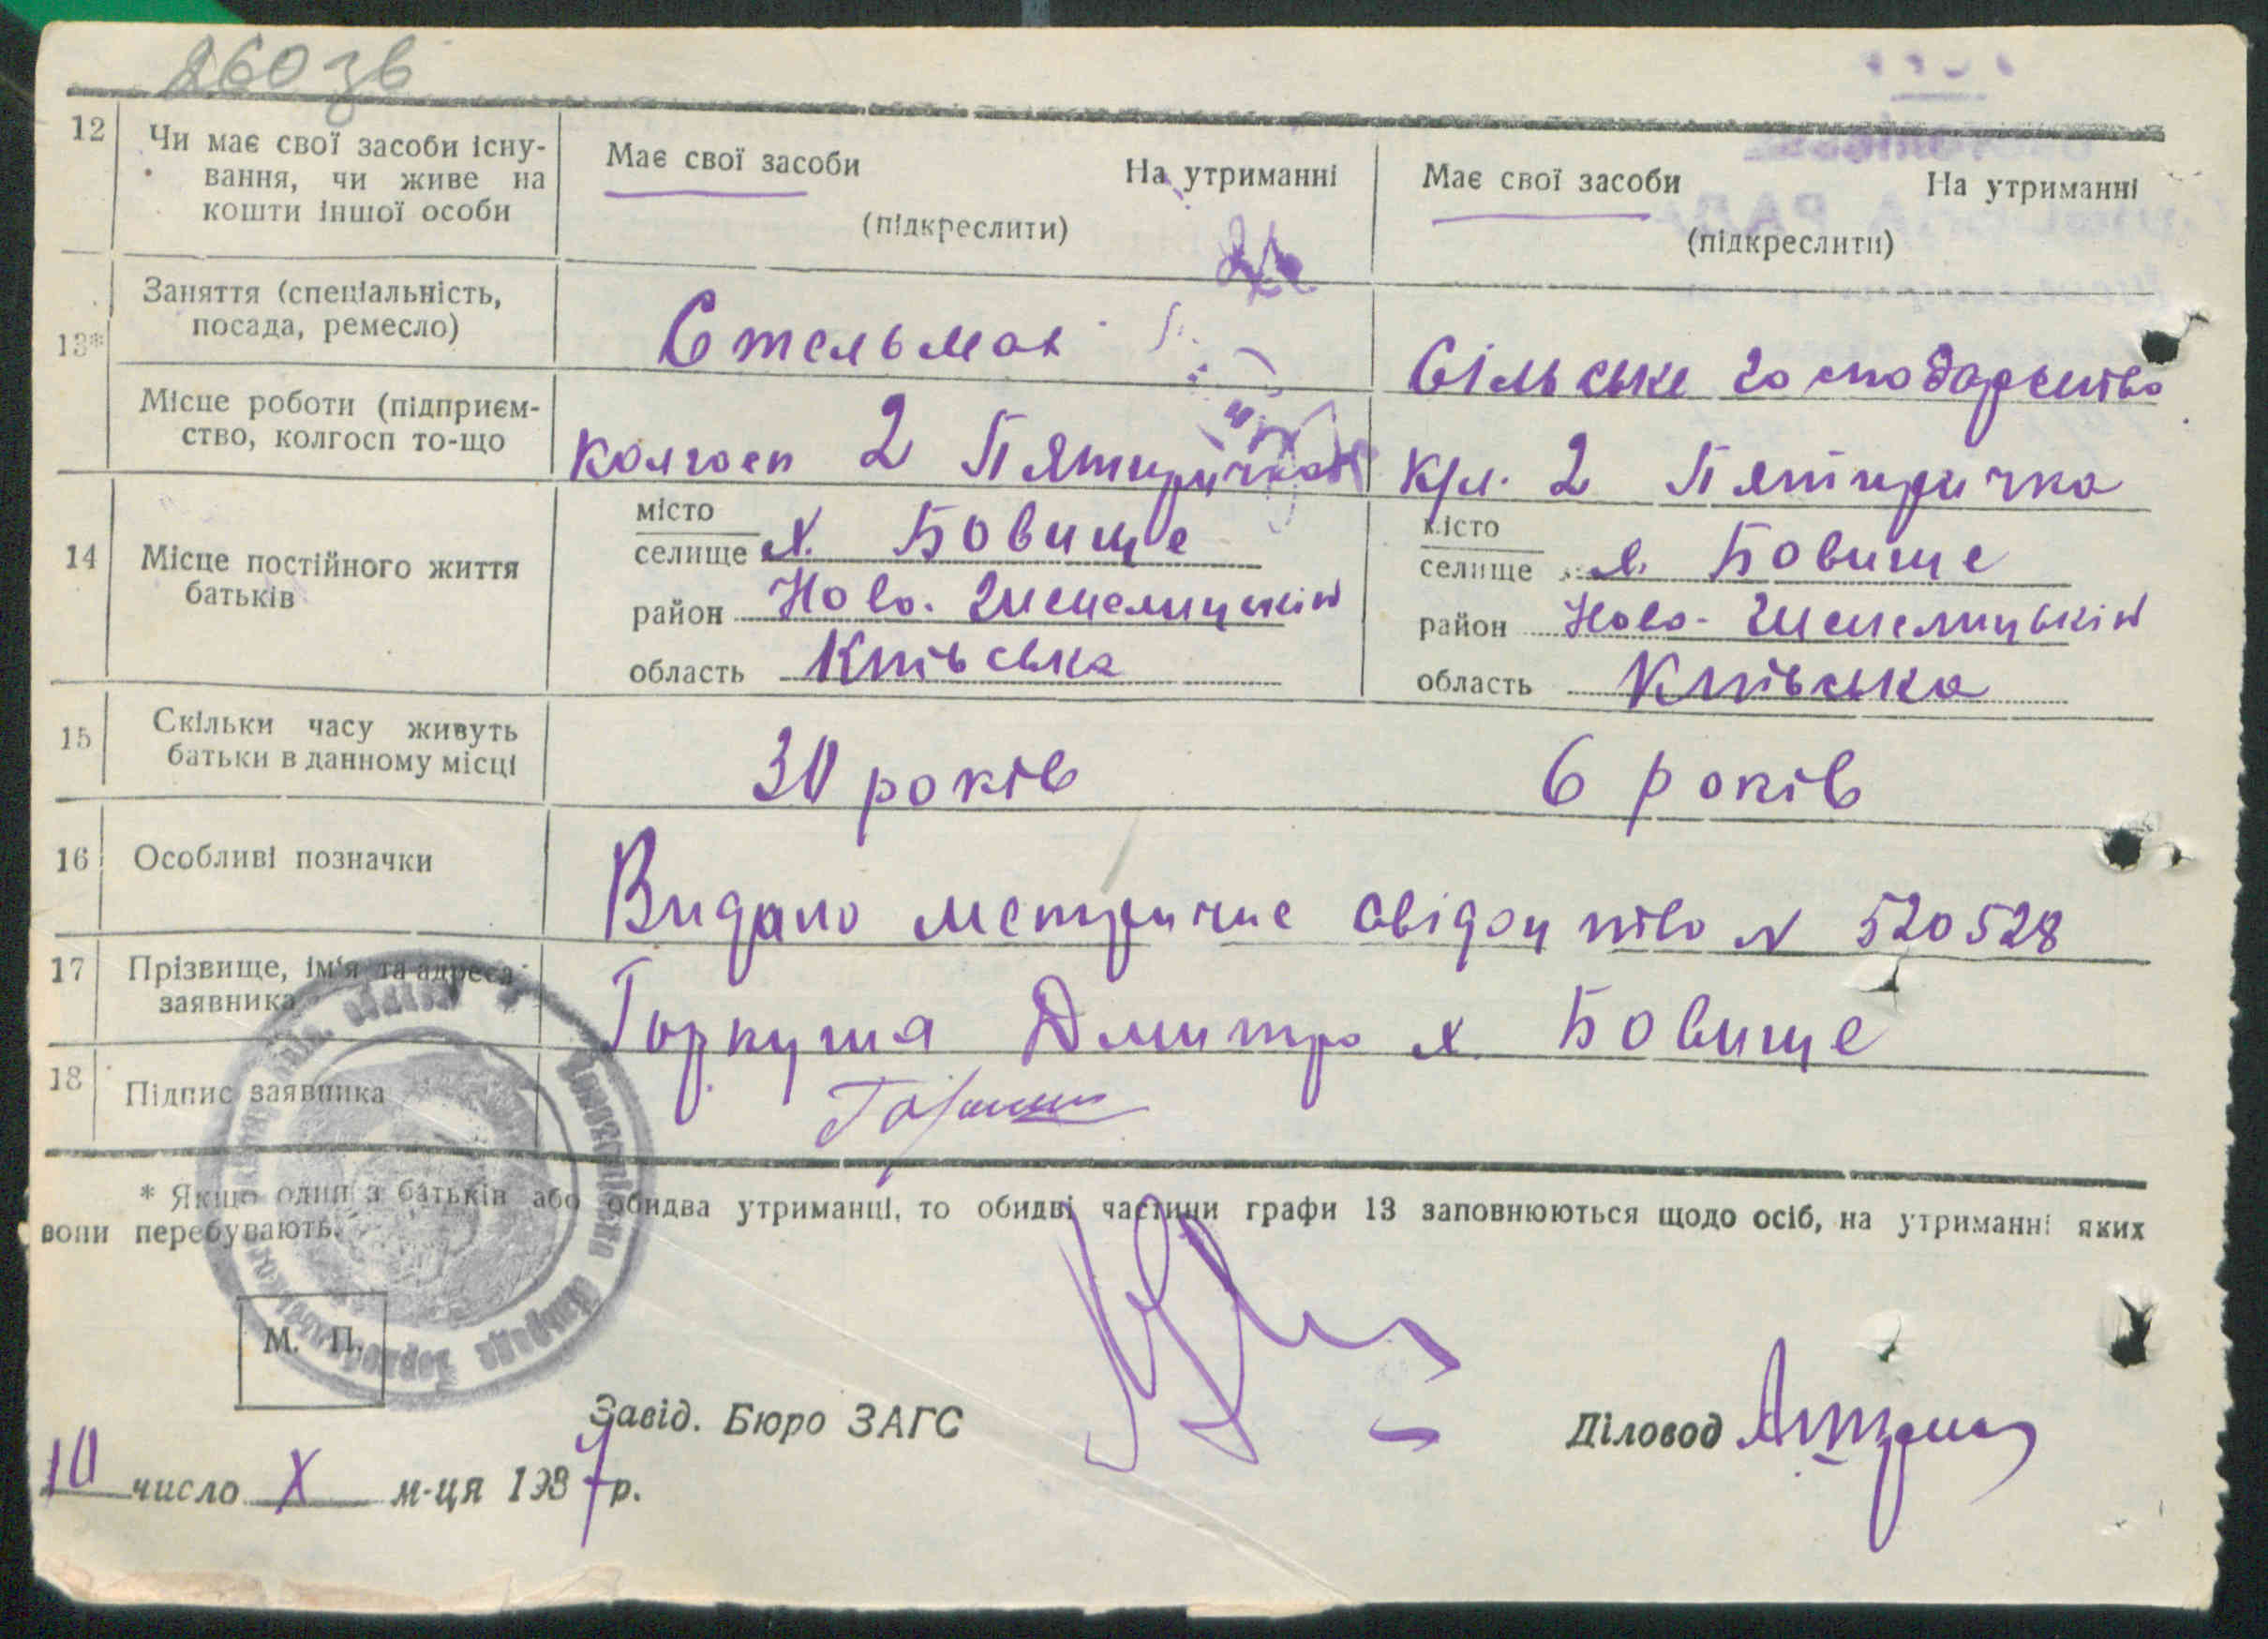 260 зв
12 Чи має свої засоби існу-
вання, чи живе на
кошти іншої особи
Має свої засоби На утриманні
(підкреслити)
Має свої засоби На утриманні
(підкреслити)
13* Заняття (спеціальність,
посада, ремесло)
Стельмах
Сільське господарство
Місце роботи (підприєм-
ство, колгосп то-що
колгосп 2 Пятиричка
к/г. 2 Пятиричка
14 Місце постійного життя
батьків
місто
селище х. Бовище
район Ново-Шепелицький
область Київська
місто
селище х. Бовище
район Ново-Шепелицький
область Київська
15 Скільки часу живуть
батьки в данному місці
30 років
6 років
16 Особливі позначки
Видано метричне свідоцтво N 520528
17 Прізвище, ім'я та адреса
заявника
Горкуша Дмитро х. Бовище
18 Підпис заявника
* Якщо один з батьків або обидва утриманці, то обидві частини графи 13 заповнюються щодо осіб, на утриманні яких
вони перебувають.
М. П.
Завід. Бюро ЗАГС
Діловод
10 число X м-ця 1937 р.